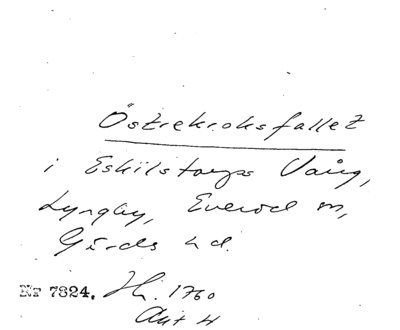 Östrekroksfallet
i Eskilstorps Vång,
Lyngby, Everöd m,
Gärds hd.
Nr 7324. Hi. 1760
Akt 4